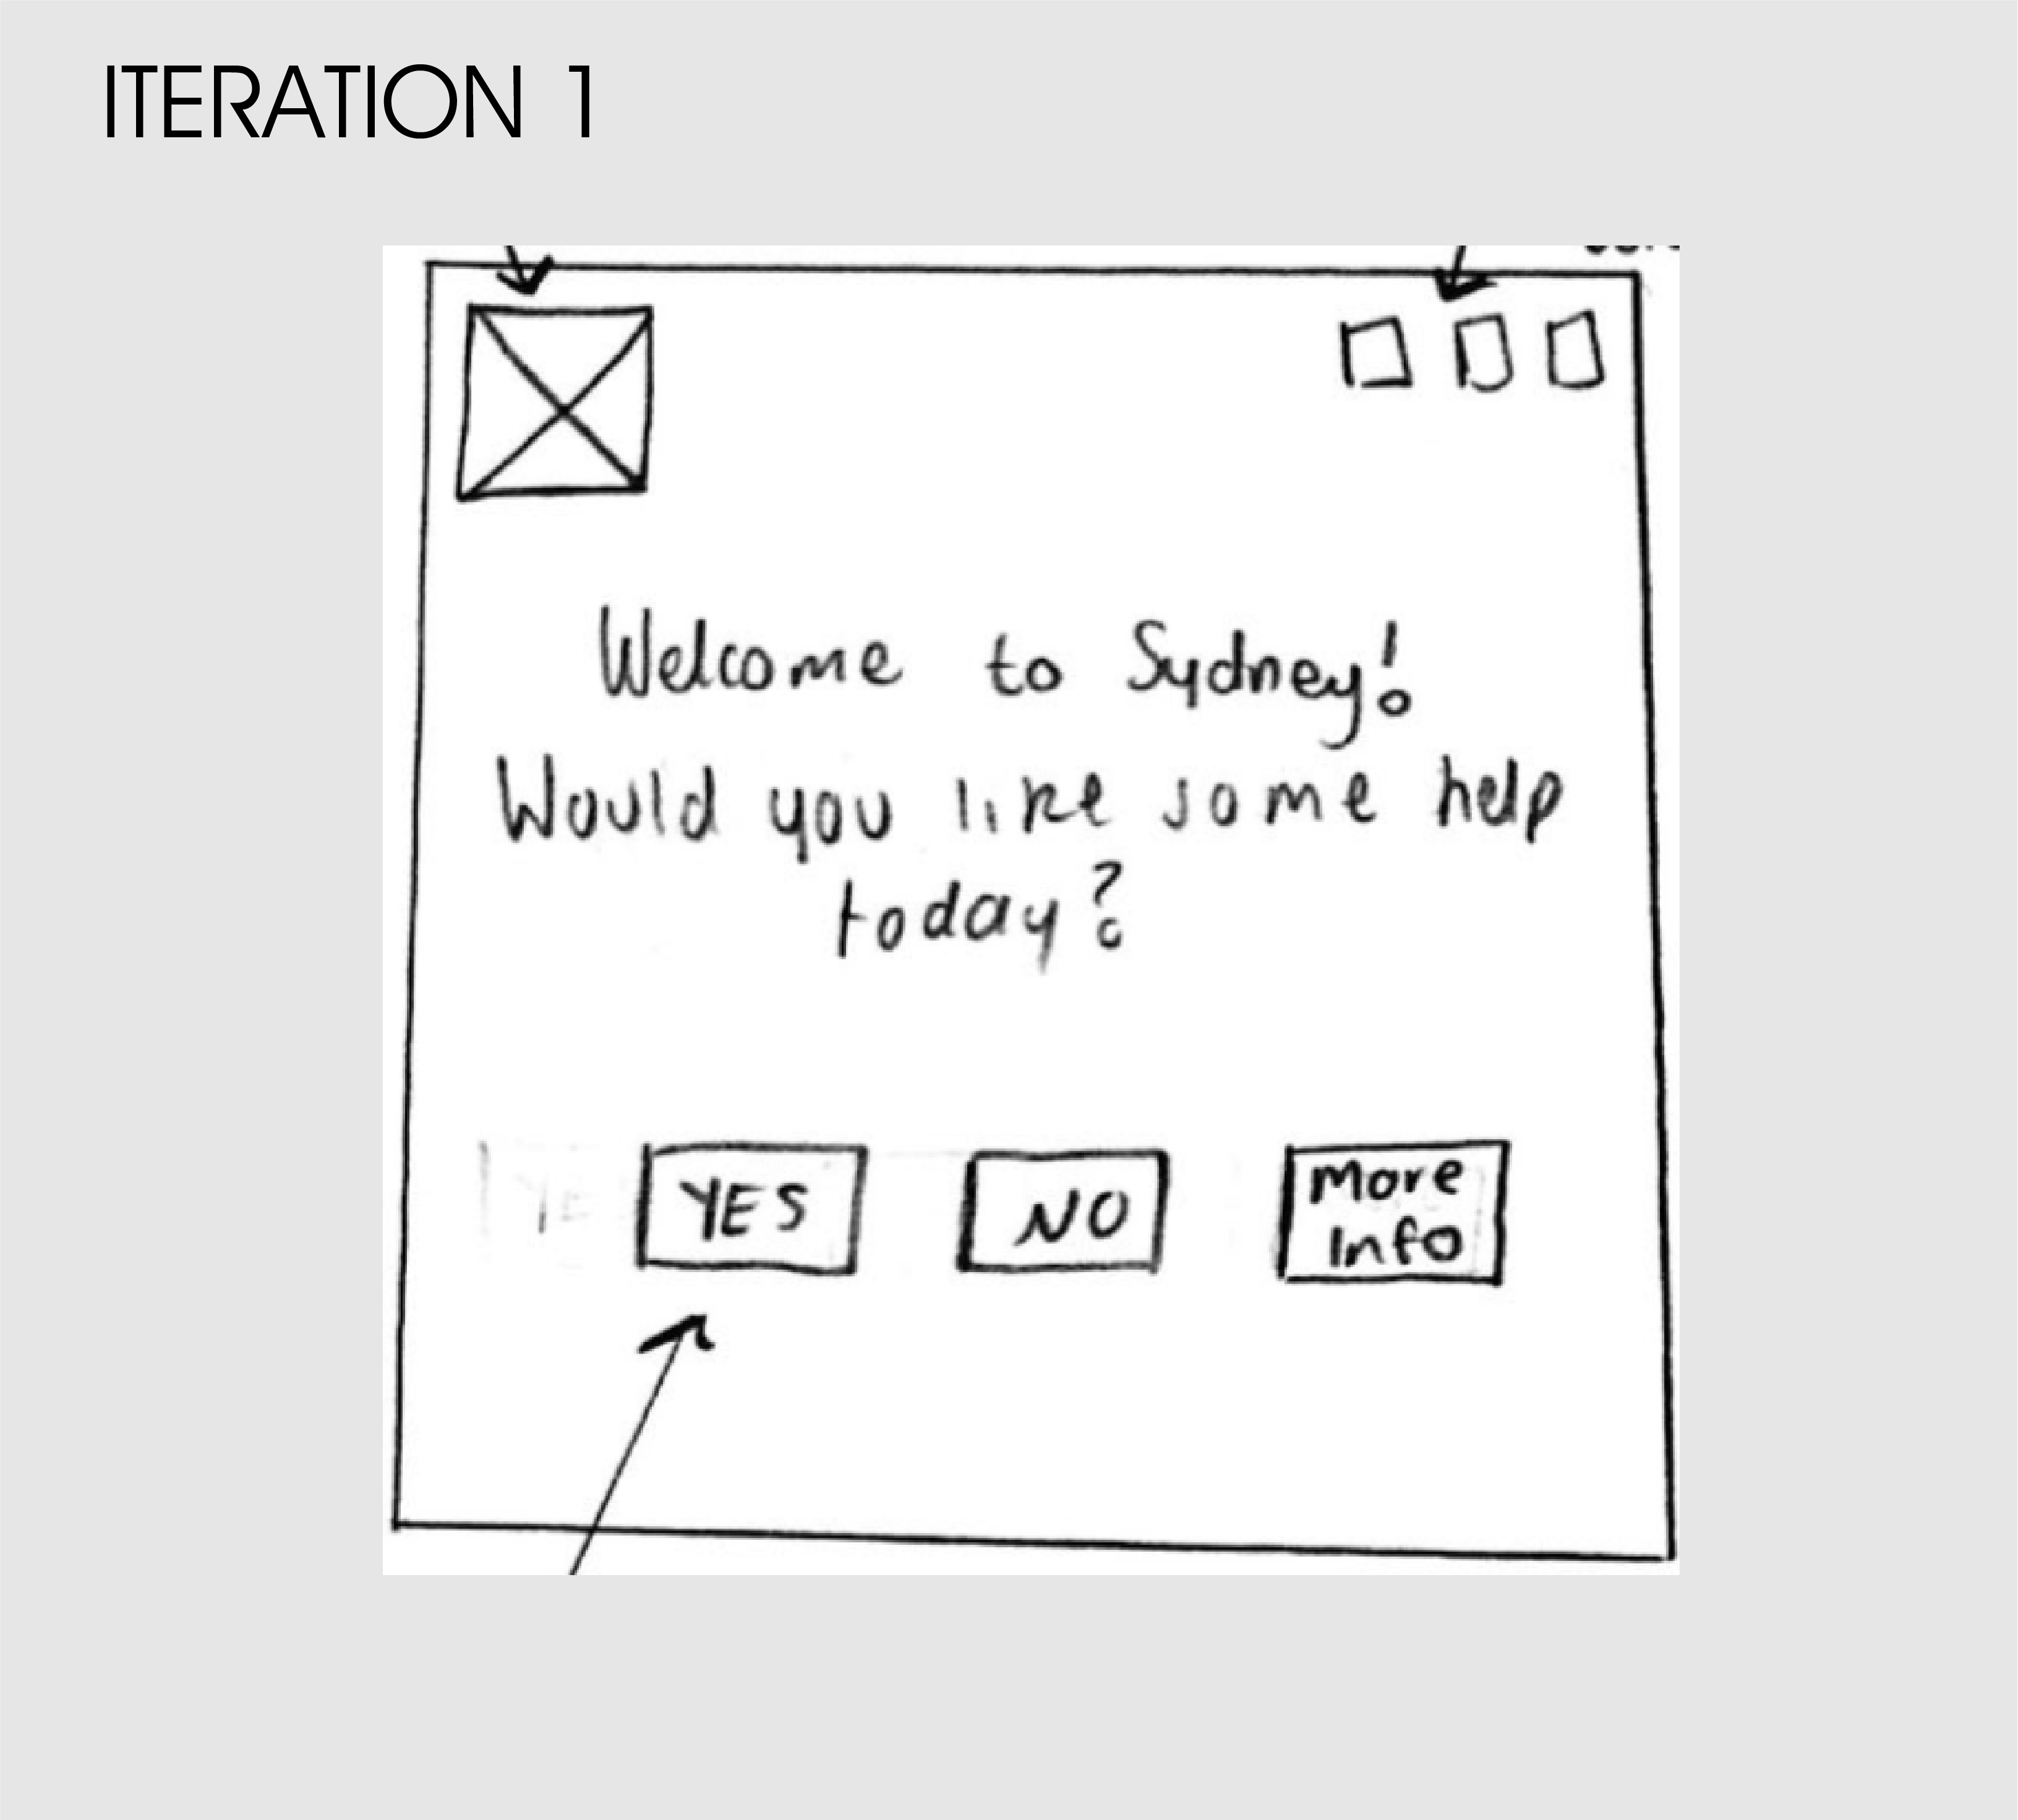 ITERATION 1
Welcome to Sydney!
Would you like some help
today?
YES
NO
More
Info